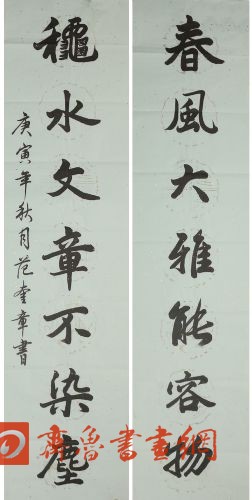 春風大雅能容物
龝水文章不染塵
庚寅年秋月范奎章書
齊魯書畫網